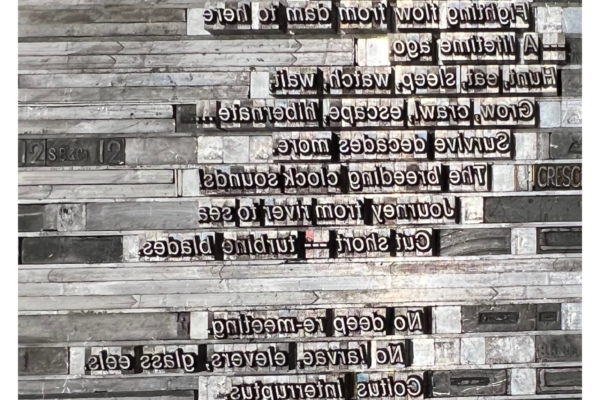 Fighting flow from dam to here
— A lifetime ago
Hunt, eat, sleep, watch, wait,
Grow, crawl, escape, hibernate ...
12 Survive decades more.
12
The breeding clock sounds!
CRESC
Journey from river to sea
Cut short — turbine blades.
No deep re-meeting.
No larvae, elevers, glass eels.
Coitus interruptus.